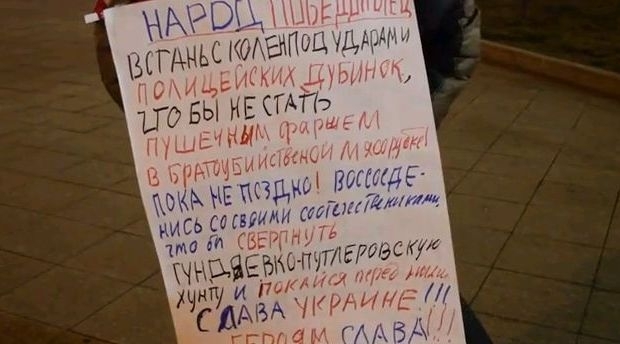 НАРОД ПОБЕДИТЕЛЕЙ
ВСТАНЬ С КОЛЕН ПОД УДАРАМИ
ПОЛИЦЕЙСКИХ ДУБИНОК,
ЧТО БЫ НЕ СТАТЬ
ПУШЕЧНЫМ ФАРШЕМ
В БРАТОУБИЙСТВЕНОЙ МЯСОРУБКЕ!
ПОКА НЕ ПОЗДНО! ВОССОЕДЕ-
НИСЬ СО СВОИМИ СООТЕЧЕСТВЕНИКАМИ,
ЧТО БЫ СВЕРГНУТЬ
ГУНДЯЕВКО-ПУТЛЕРОВСКУЮ
ХУНТУ И ПОКАЙСЯ ПЕРЕД НЫМИ
СЛАВА УКРАИНЕ!!!
ГЕРОЯМ СЛАВА!!!